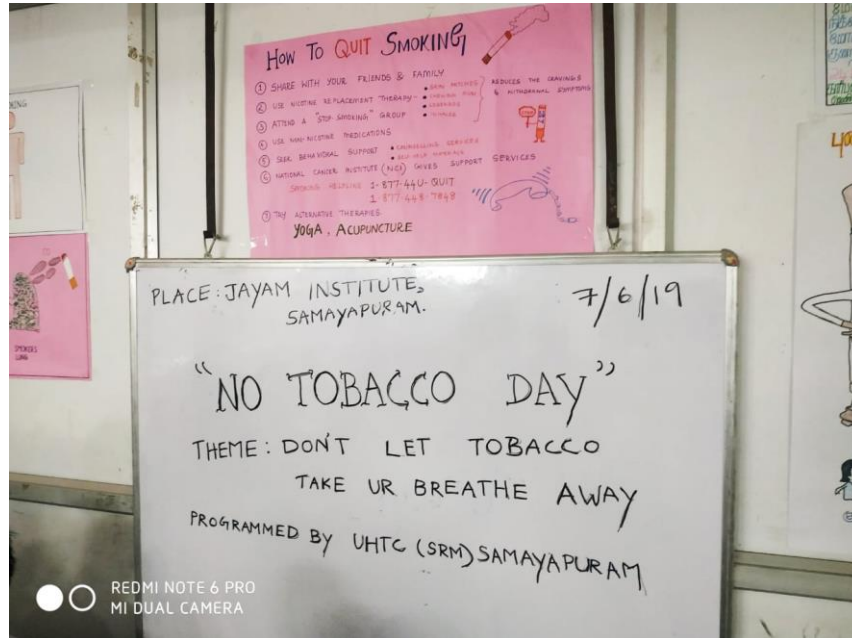 HOW TO QUIT SMOKING
① SHARE WITH YOUR FRIENDS & FAMILY
② USE NICOTINE REPLACEMENT THERAPY
REDUCES THE CRAVINGS
& WITHDRAWAL SYMPTOMS
③ ATTEND A "STOP-SMOKING" GROUP
④ USE NON-NICOTINE MEDICATIONS
⑤ SEEK BEHAVIORAL SUPPORT
• COUNSELLING SERVICES
• SELF-HELP MATERIALS
⑥ NATIONAL CANCER INSTITUTE (NCI) GIVES SUPPORT SERVICES
SMOKING HELPLINE 1-877-44U-QUIT
1-877-448-7848
⑦ TRY ALTERNATIVE THERAPIES
YOGA, ACUPUNCTURE
SMOKERS
LUNG
PLACE: JAYAM INSTITUTE,
SAMAYAPURAM.
7/6/19
"NO TOBACCO DAY"
THEME: DON'T LET TOBACCO
TAKE UR BREATHE AWAY
PROGRAMMED BY UHTC (SRM) SAMAYAPURAM
REDMI NOTE 6 PRO
MI DUAL CAMERA